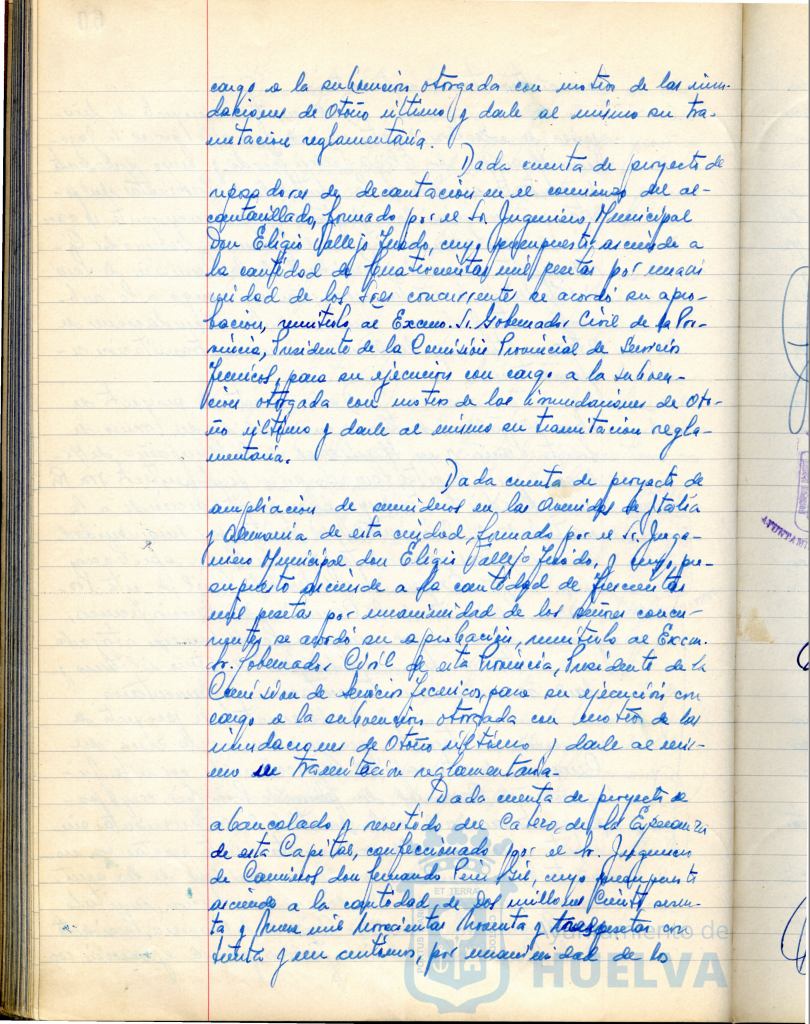 cargo a la subvención otorgada con motivo de las inun-
daciones de Otoño último y darle al mismo su tra-
mitación reglamentaria.
Dada cuenta de proyecto de
reposadores de decantación en el comienzo del al-
cantarillado, formado por el Sr. Ingeniero Municipal
Don Eligio Vallejo, cuyo presupuesto asciende a
la cantidad de Cuatrocientas mil pesetas por unani
midad de los Sres concurrentes se acordó su apro-
bación, remitirlo al Excmo. Sr. Gobernador Civil de la Pro-
vincia, Presidente de la Comisión Provincial de Servicios
Técnicos, para su ejecución con cargo a la subven-
ción otorgada con motivo de las inundaciones de Oto-
ño último y darle al mismo su tramitación regla-
mentaria.
Dada cuenta de proyecto de
ampliación de sumideros en las Avenidas de Italia
y Alemania de esta ciudad, formado por el Sr. Inge-
niero Municipal don Eligio Vallejo, y cuyo pre-
supuesto asciende a la cantidad de Trescientas
mil pesetas por unanimidad de los señores concu-
rrentes se acordó su aprobación, remitirlo al Excm.
Sr. Gobernador Civil de esta Provincia, Presidente de la
Comisión de Servicios Técnicos, para su ejecución con
cargo a la subvención otorgada con motivo de las
inundaciones de Otoño último y darle al mis-
mo su tramitación reglamentaria.
Dada cuenta de proyecto de
abancalado y revestido del Cabezo de la Esperanza
de esta Capital, confeccionado por el Sr. Ingeniero
de Caminos don Fernando, cuyo presupuesto
asciende a la cantidad de Dos millones Ciento sesen-
ta y Nueve mil Novecientas Noventa y tres pesetas con
treinta y un centimos, por unanimidad de los
Ayuntamiento de
HUELVA